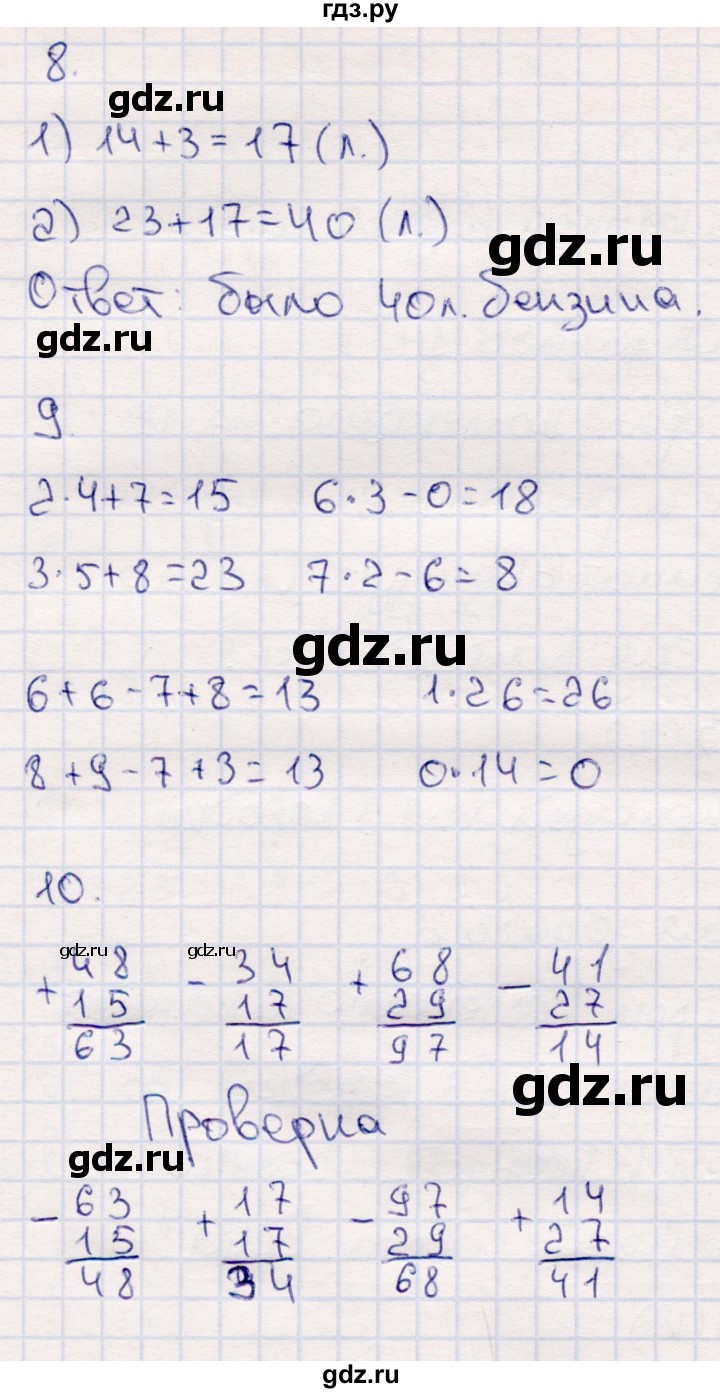 гдз.ру
8.
gdz.ru
1) 14+3=17 (л.)
2) 23+17=40 (л.)
gdz.ru
Ответ: было 40л. бензина.
gdz.ru
9.
2·4+7=15 6·3-0=18
3·5+8=23 7·2-6=8
gdz.ru
6+6-7+8=13 1·26=26
8+9-7+3=13 0·14=0
10.
gdz.ru gdz.ru
+ 48 - 34 + 68 - 41
15 17 29 27
63 17 97 14
gdz.ru
Проверка
gdz.ru
- 63 + 17 - 97 + 14
15 17 29 27
48 34 68 41
gdz.ru